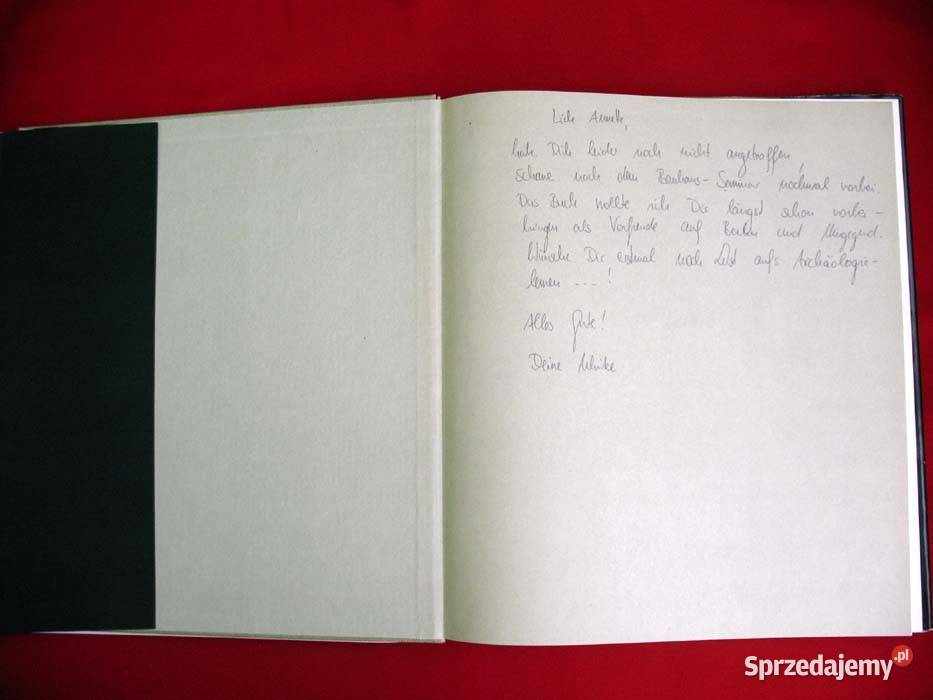 Liebe Annette,
habe Dich leider noch nicht angetroffen,
schaue nach dem Bauhaus-Seminar nochmal vorbei.
Das Buch wollte ich Dir längst schon vorbei-
bringen als Vorfreude auf Berlin und Umgegend.
Wünsche Dir erstmal noch Lust aufs Archäologie-
lernen ---!
Alles Gute!
Deine Ulrike
Sprzedajemy.pl